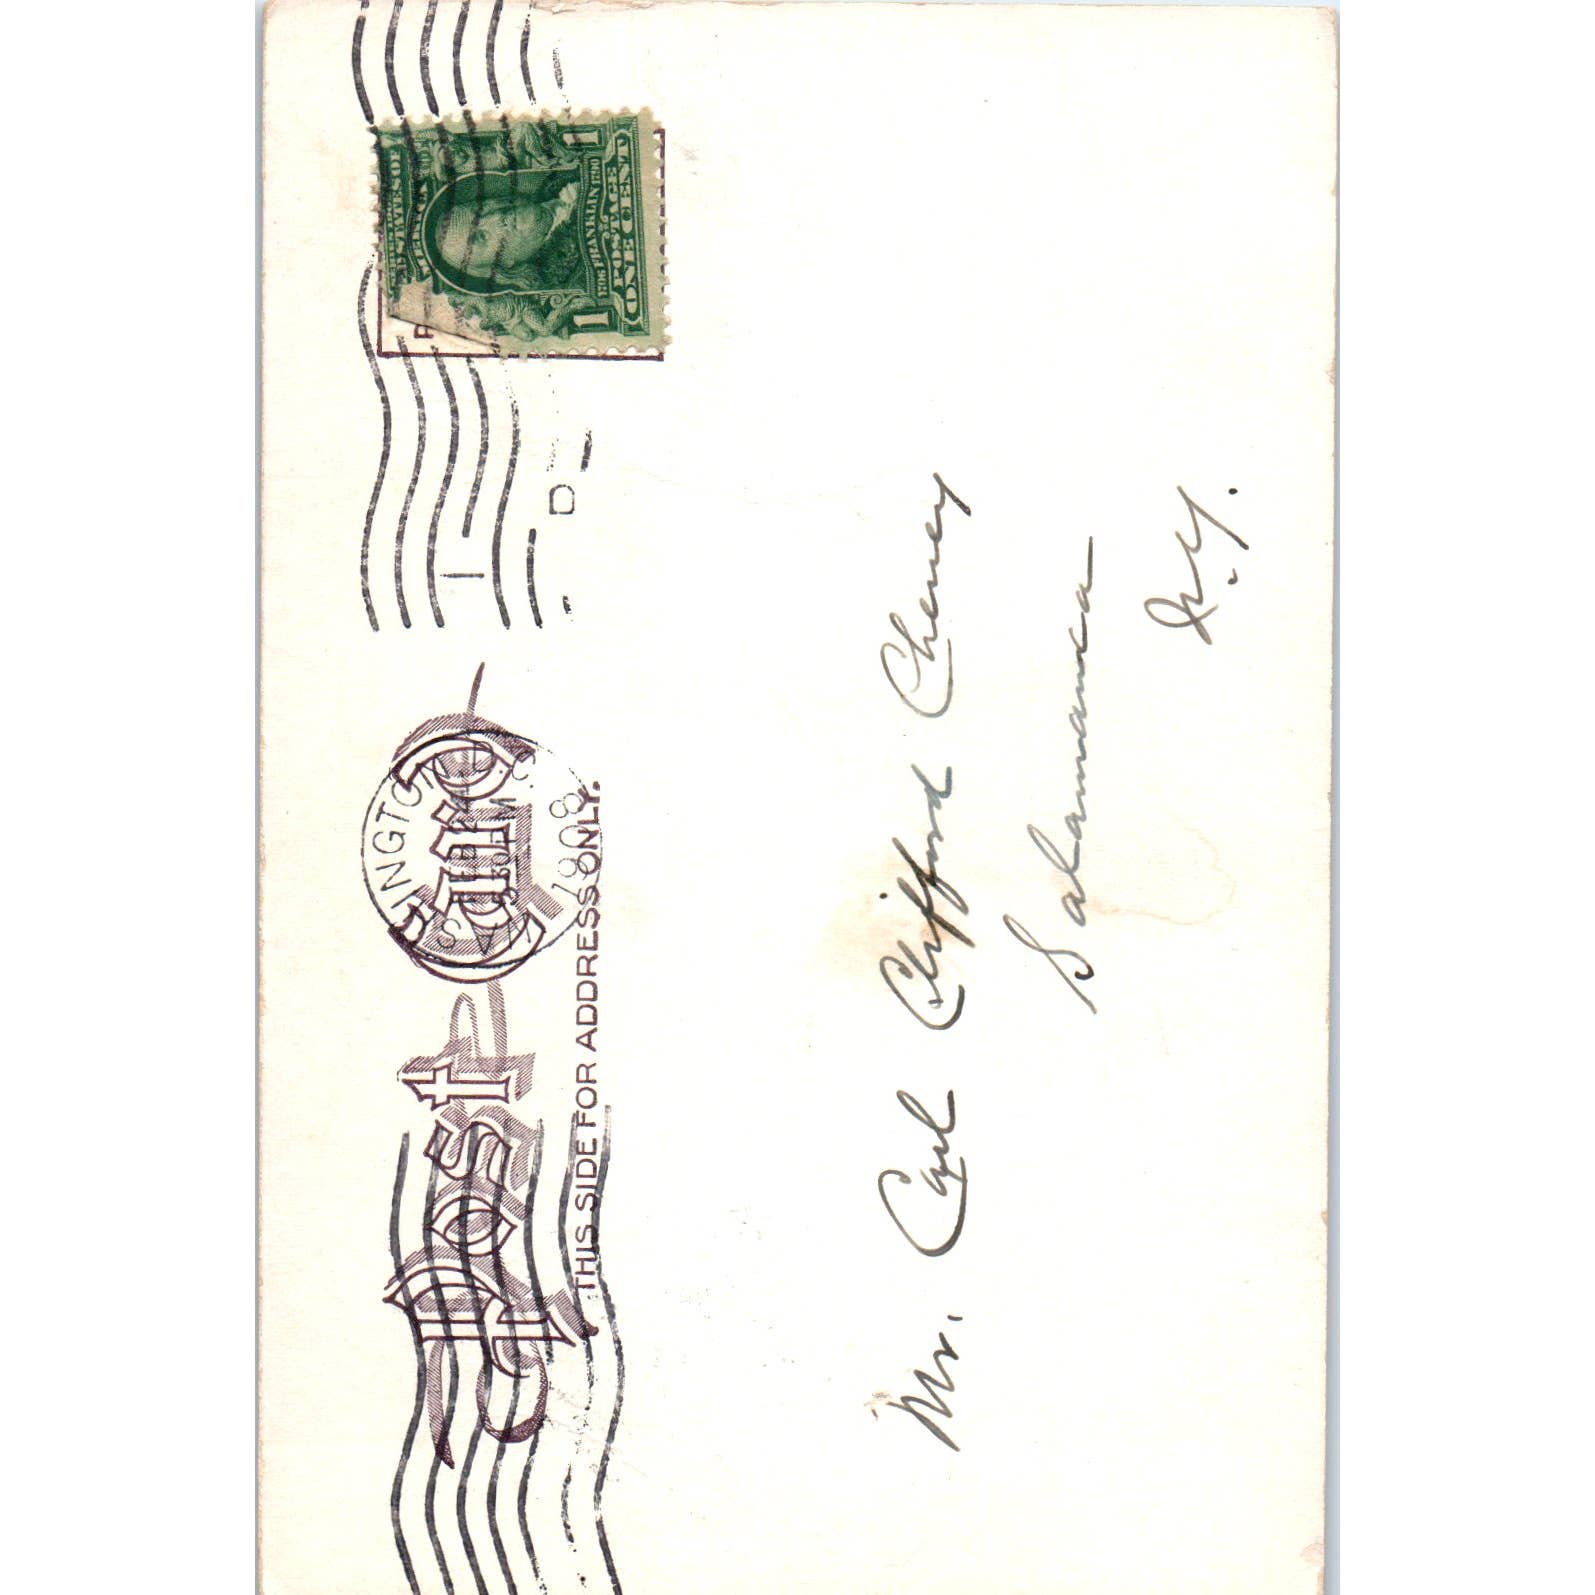 Post Card
THIS SIDE FOR ADDRESS ONLY.
INGTON, D.
1908
1
D
SERIES 1902
POSTAGE
ONE CENT
1706 FRANKLIN 1790
1 1
Mr. Carl Clifford Cheney
Salamanca
N.Y.